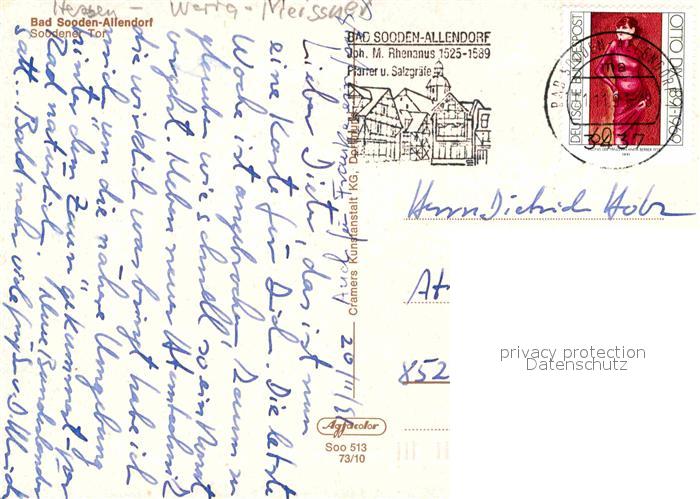 Hessen - Werra-Meissner
Bad Sooden-Allendorf
Soodener Tor
BAD SOODEN-ALLENDORF
Joh. M. Rhenanus 1525-1589
Pfarrer u. Salzgräfe
BAD SOODEN-ALLENDORF
ma
3437
DEUTSCHE BUNDESPOST
OTTO DIX 1891-1969
60
Lieber Dieter, das ist nun
eine Karte für Dich. Die letzte
Woche ist angebrochen. Kaum zu
glauben wie schnell so ein Monat
vergeht. Neben neuer Atemtechnik
die wirklich was bringt habe ich
mich um die nähere Umgebung
"hinter dem Zaun" gekümmert. Vor
Rad natürlich. Neue Bundesländer
satt. Bald mehr. viele Grüße
20/11/91
Cramers Kunstanstalt KG, Dortmund
Agfacolor
Soo 513
73/10
Herrn Dietrich Holz
At
852
privacy protection
Datenschutz